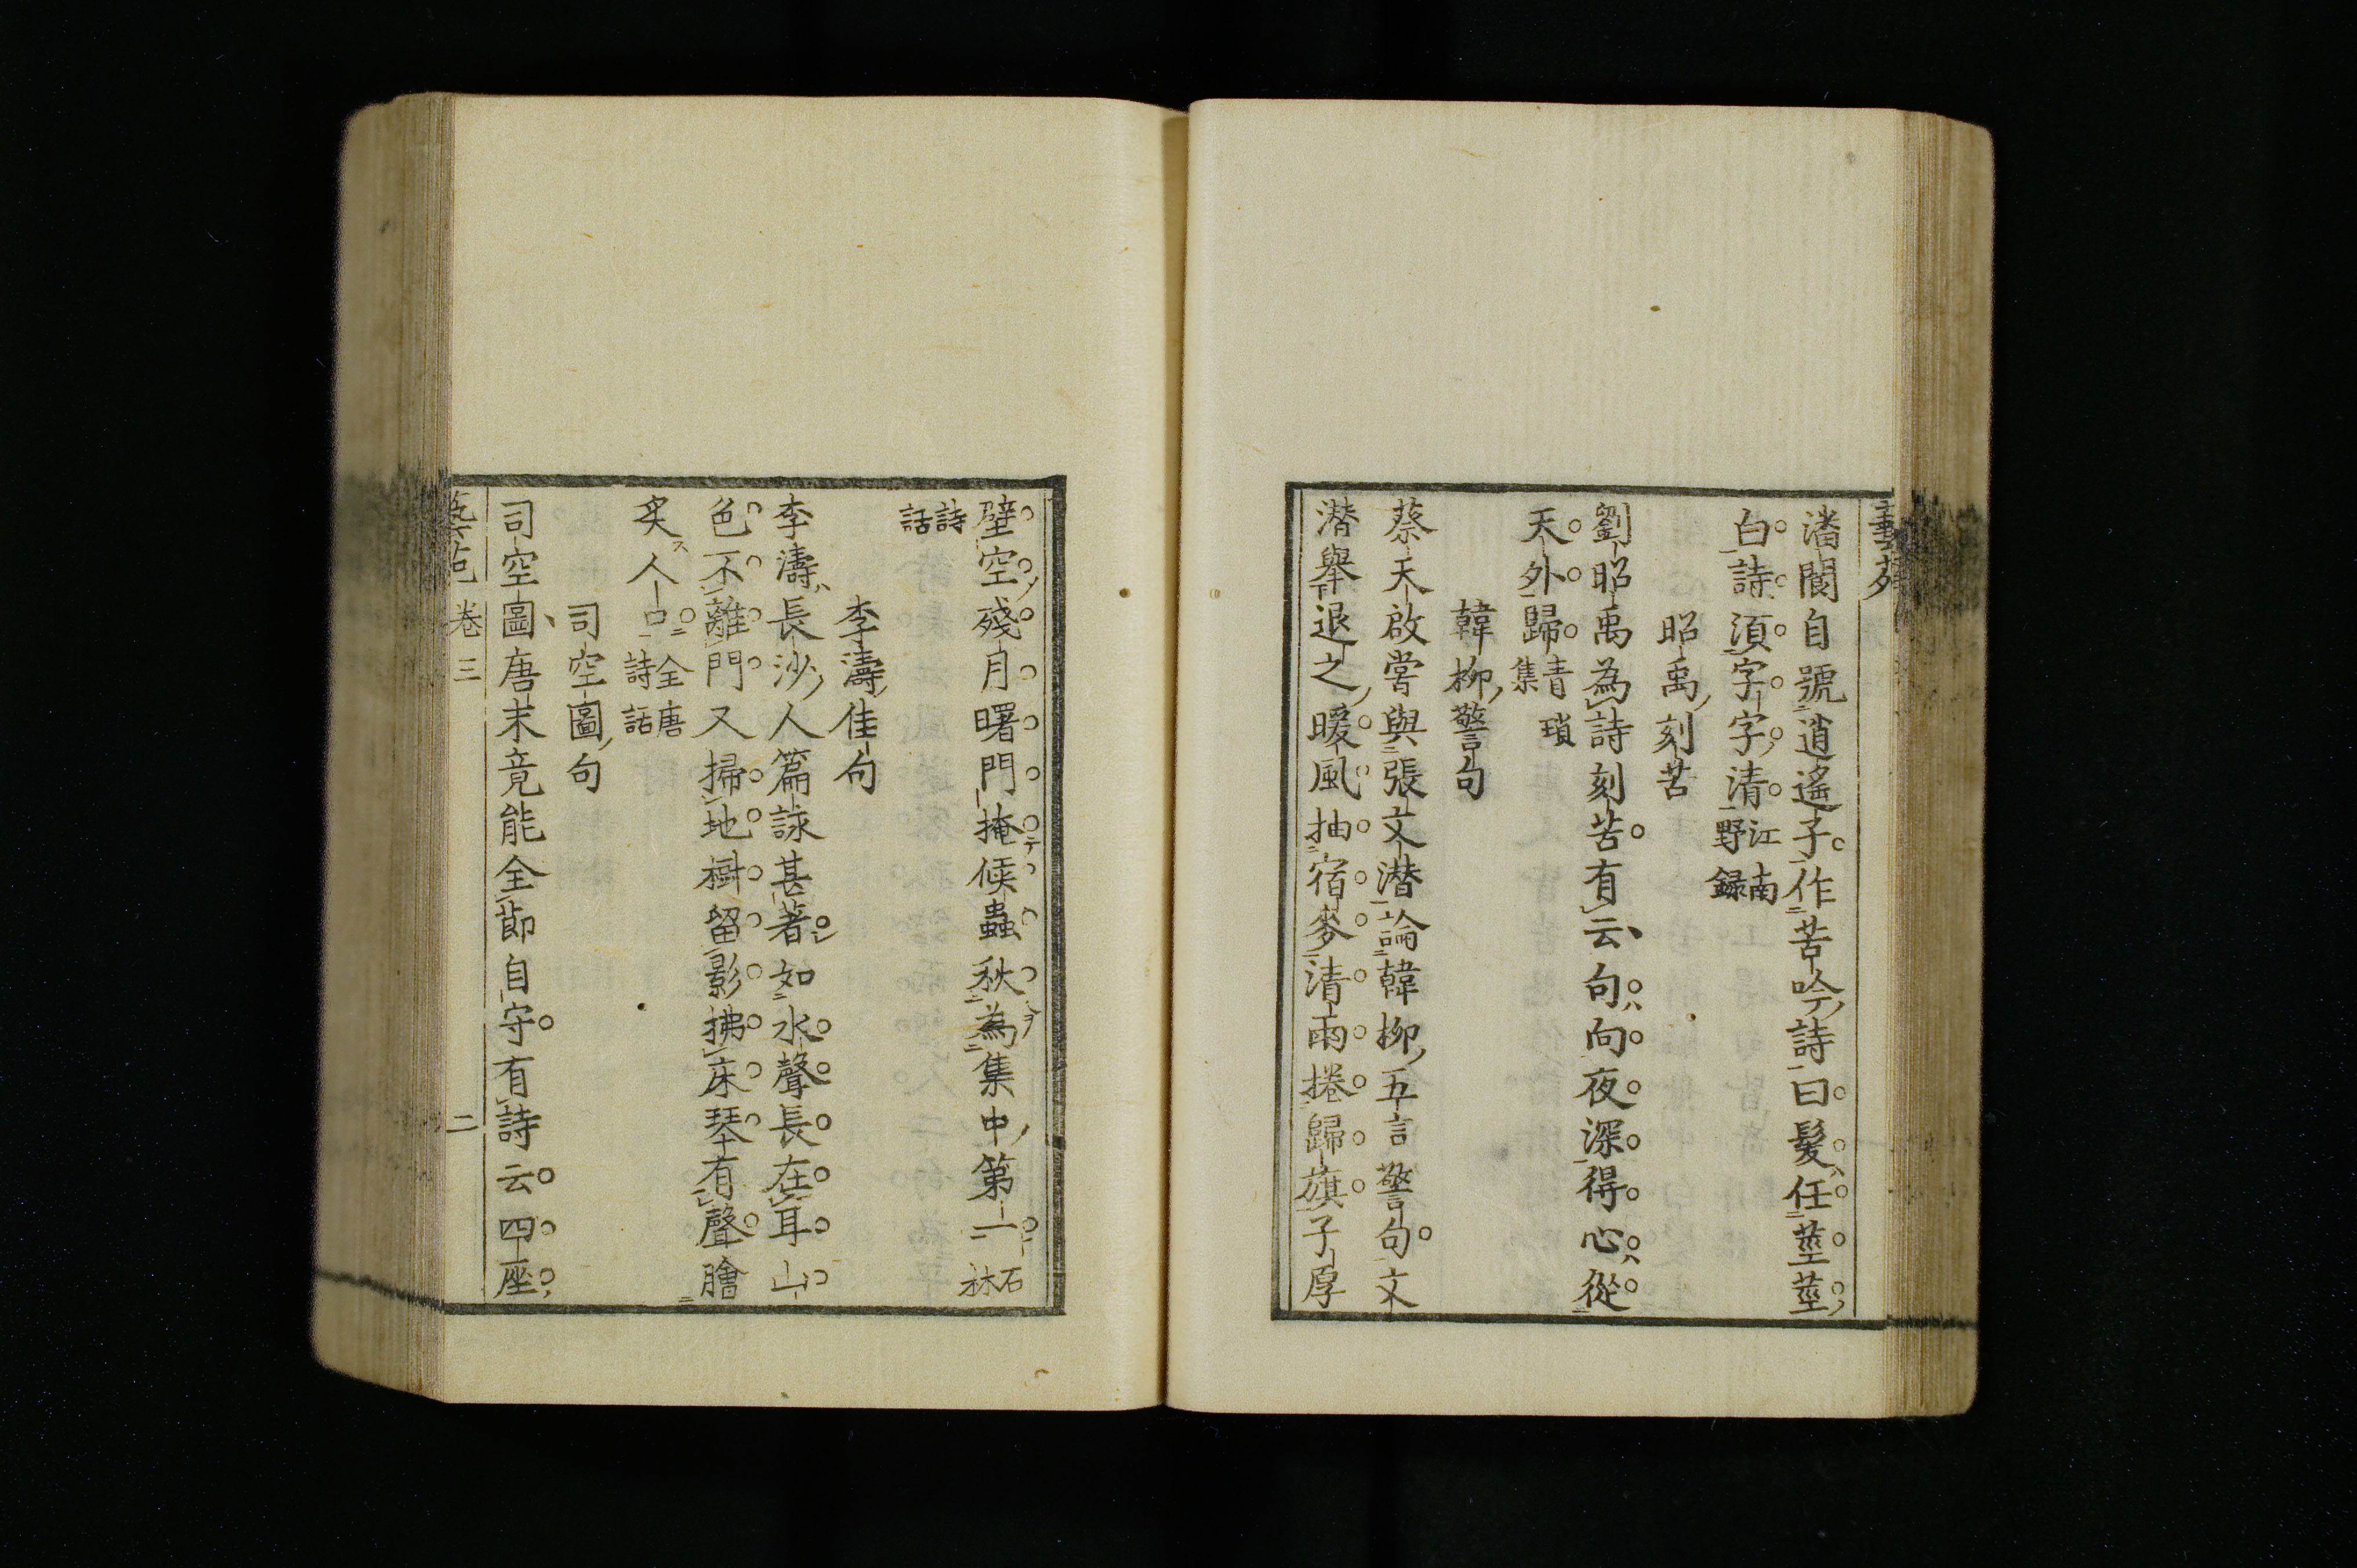 潘閬自號逍遙子作苦吟詩曰髮任莖莖
白詩須字字清江南野録
昭禹刻苦
劉昭禹為詩刻苦有云句向夜深得心從
天外歸青瑣集
韓柳警句
蔡天啟嘗與張文潜論韓柳五言警句文
潜舉退之暖風抽宿麥清雨捲歸旗子厚
壁空殘月曙門掩候蟲秋為集中第一石林
詩話
李濤佳句
李濤長沙人篇詠甚著如水聲長在耳山
色不離門又掃地樹留影拂床琴有聲膾
炙人口全唐詩話
司空圖句
司空圖唐末竟能全節自守有詩云四座
卷三 二